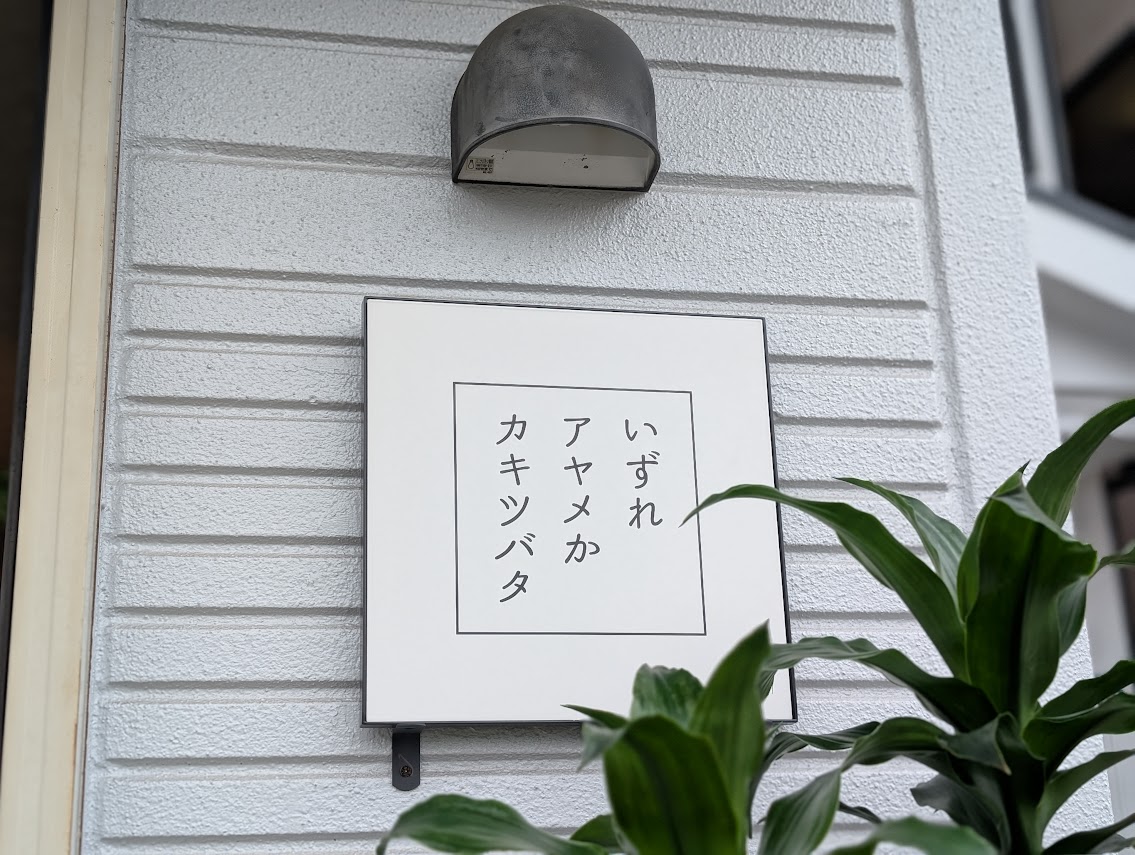 いずれ
アヤメか
カキツバタ